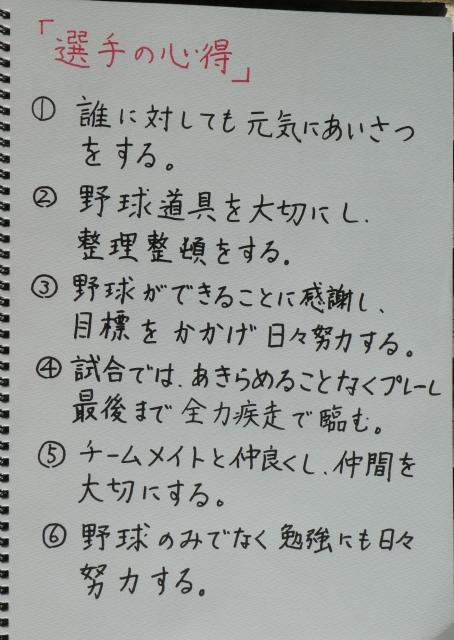 「選手の心得」
① 誰に対しても元気にあいさつ
をする。
② 野球道具を大切にし、
整理整頓をする。
③ 野球ができることに感謝し、
目標をかかげ日々努力する。
④ 試合では、あきらめることなくプレーし
最後まで全力疾走で臨む。
⑤ チームメイトと仲良くし、仲間を
大切にする。
⑥ 野球のみでなく勉強にも日々
努力する。